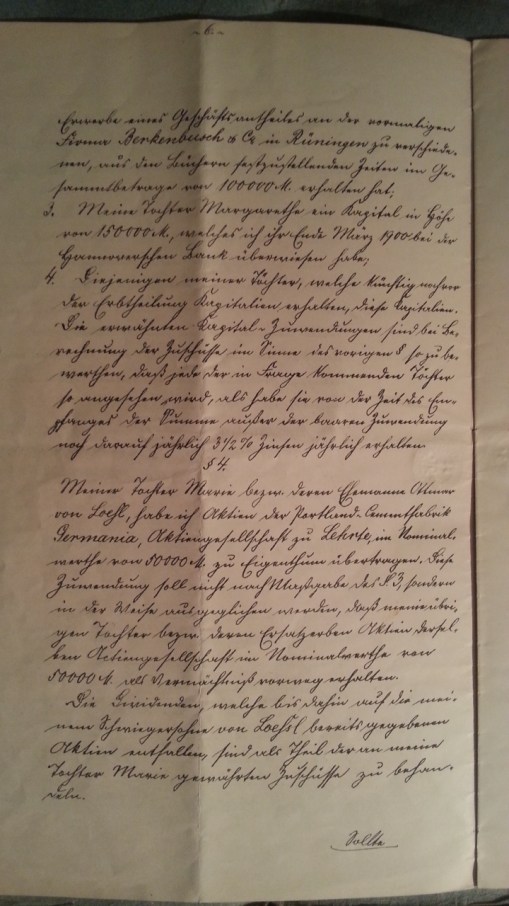 - 6. -
Erwerbe eines Geschäftsantheiles an der vormaligen
Firma Berkenbusch & Co in Rüningen zu verschiede-
nen, aus den Büchern festzustellenden Zeiten im Ge-
sammtbetrage von 100000 M. erhalten hat;
3. Meine Tochter Margarethe ein Kapital in Höhe
von 150000 M., welches ich ihr Ende März 1900 bei der
Hannoverschen Bank überwiesen habe;
4. Diejenigen meiner Töchter, welche künftig noch vor
der Erbtheilung Kapitalien erhalten, diese Kapitalien.
Die erwähnten Kapital-Zuwendungen sind bei Be-
rechnung der Zuschüsse im Sinne des vorigen § so zu be-
werthen, daß jede der in Frage kommenden Töchter
so angesehen wird, als habe sie von der Zeit des Em-
pfanges der Summe außer der baaren Zuwendung
noch darauf jährlich 3 1/2 % Zinsen jährlich erhalten.
§ 4.
Meiner Tochter Marie bezw. deren Ehemanne Ottmar
von Loessl, habe ich Aktien der Portland-Cementfabrik
Germania, Aktiengesellschaft zu Lehrte, im Nominal-
werthe von 50000 M. zu Eigenthum übertragen. Diese
Zuwendung soll nicht nach Maßgabe des §. 3, sondern
in der Weise ausgeglichen werden, daß meine übri-
gen Töchter bezw. deren Ersatzerben Aktien dersel-
ben Actiengesellschaft im Nominalwerthe von
50000 M. als Vermächtniß vorweg erhalten.
Die Dividenden, welche bis dahin auf die mei-
nem Schwiegersohne von Loessl bereits gegebenen
Aktien entfallen, sind als Theil der an meine
Tochter Marie gewährten Zuschüsse zu behan-
deln.
Sollte